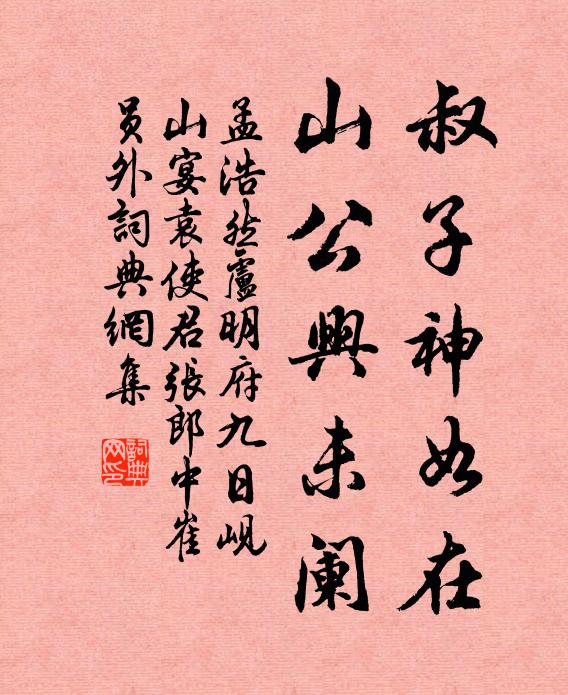 叔子神如在
山公興未闌
孟浩然盧明府九日峴
山宴袁使君張郎中崔
員外詞典網集
詞典
网印